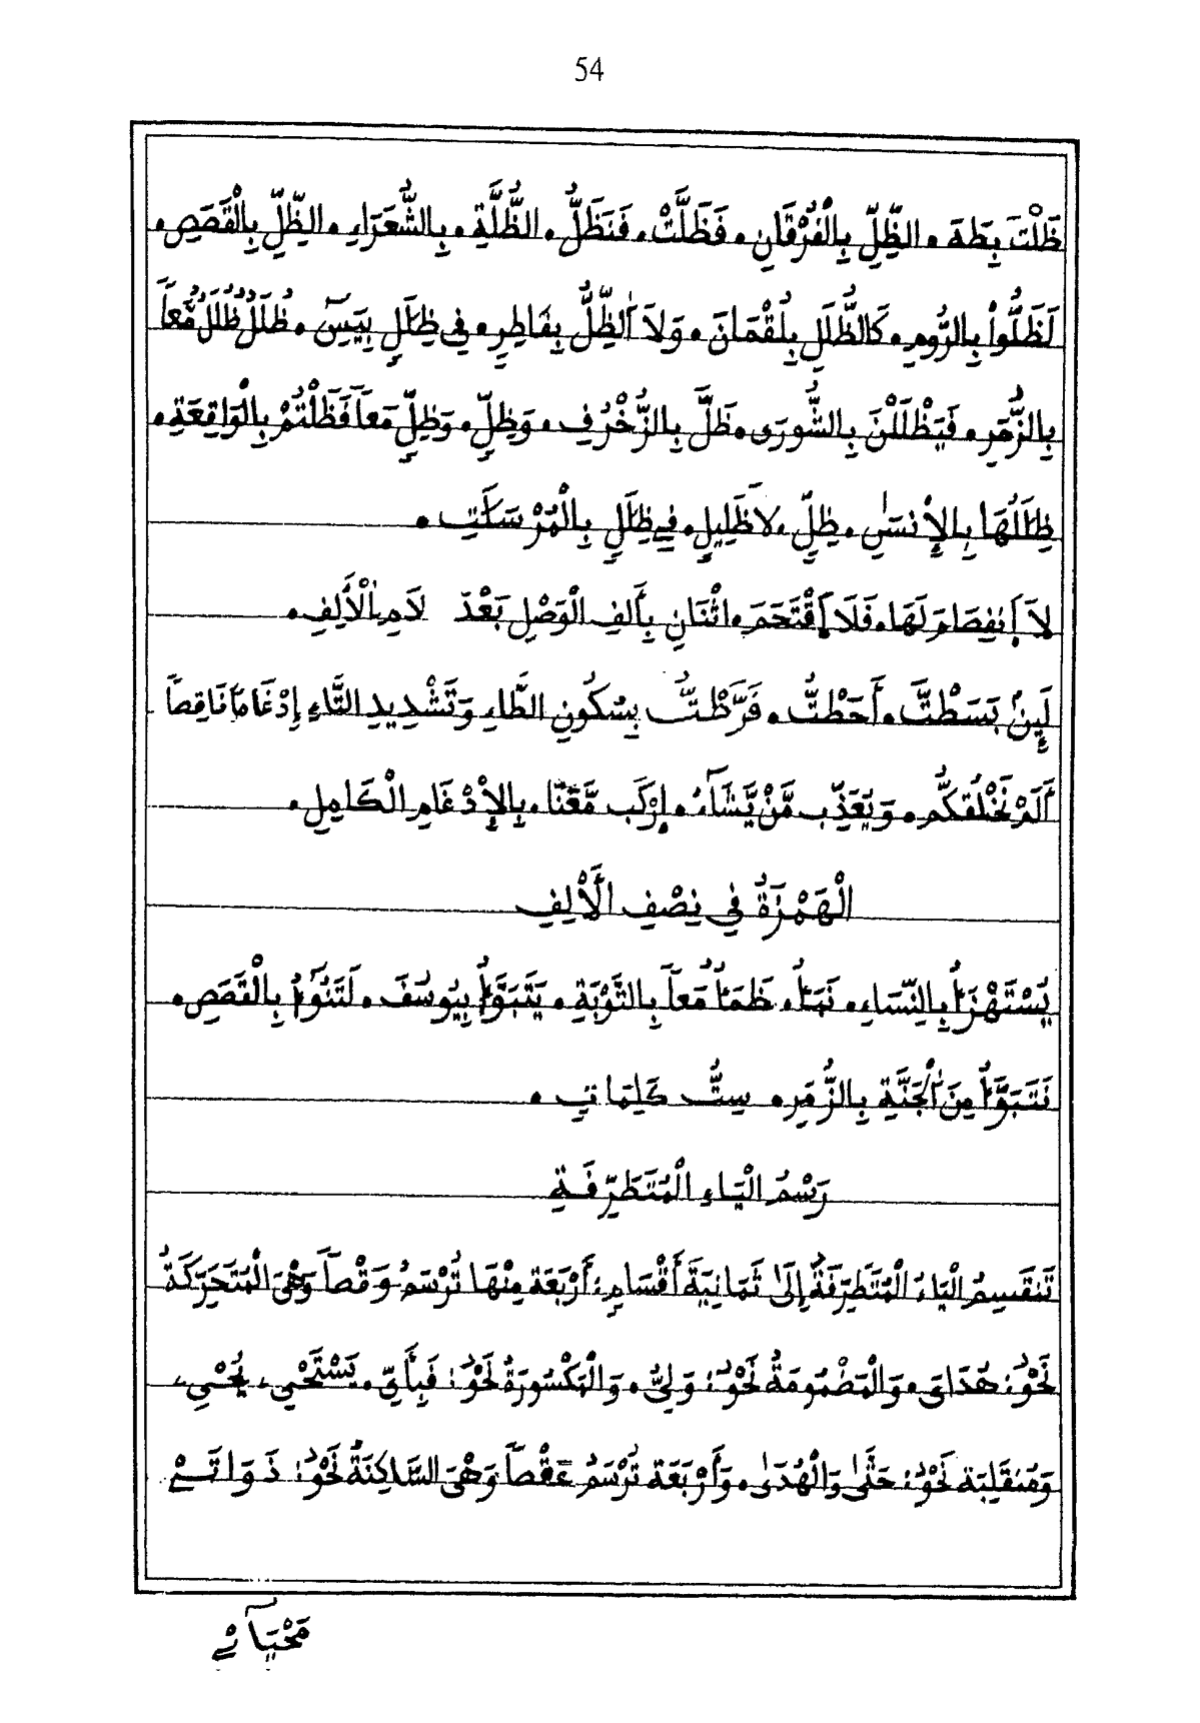 54
ظَلْتَ بِطَهَ • الظِّلِّ بِالْفُرْقَانِ • فَظَلَّتْ • فَنَظَلُّ • الظُّلَّةِ • بِالشُّعَرَاءِ • الظِّلِّ بِالْقَصَصِ •
لَظَلُّواْ بِالرُّومِ • كَالظُّلَلِ بِلُقْمَانَ • وَلاَ اَلظِّلُّ بِفَاطِرٍ • فِي ظِلَٰلٍ بِيَسٓ • ظُلَلٌ ظُلَلٌ مَّعاً
بِالزُّمَرِ • فَيَظْلَلْنَ بِالشُّورَى • ظَلَّ بِالزُّخْرُفِ • وَظِلٍّ • وَظِلٍّ مَعاً فَظَلْتُمْ بِالْوَاقِعَةِ •
ظِلَٰلُهَا بِالإِنسَٰنِ • ظِلٍّ • لاَ ظَلِيلٍ • فِي ظِلَٰلٍ بِالْمُرْسَلَٰتِ •
لاَ اَنفِصَامَ لَهَا • فَلَا اَقْتَحَمَ • اثْنَانِ بِأَلِفِ الْوَصْلِ بَعْدَ لاَمِ اٰلْأَلِفِ •
لَئِنۢ بَسَطْتَّ • أَحَطْتُّ • فَرَّطْتُّ بِسُكُونِ الطَّاءِ وَتَشْدِيدِ التَّاءِ إِدْغَاماً نَاقِصاً
أَلَمْ نَخْلُقكُّم • وَيُعَذِّب مَّنْ يَّشَآءُ • اِرْكَب مَّعَنَا • بِالإِدْغَامِ الْكَامِلِ •
الْهَمْزَةُ فِي نِصْفِ الْأَلِفِ
يُسْتَهْزَأُ بِالنِّسَاءِ • نَبَأُ • ظَمَأٌ مَعاً بِالتَّوْبَةِ • يَتَبَوَّأُ بِيُوسُفَ • لَتَنُوٓأُ بِالْقَصَصِ •
نَتَبَوَّأُ مِنَ اَلْجَنَّةِ بِالزُّمَرِ • سِتُّ كَلِمَاتٍ •
رَسْمُ الْيَاءِ الْمُتَطَرِّفَةِ
تَنقَسِمُ الْيَاءُ الْمُتَطَرِّفَةُ إِلَىٰ ثَمَانِيَةَ أَقْسَامٍ: أَرْبَعَة مِنْهَا تُرْسَمُ وَقْصاً وَهْىَ الْمُتَحَرِّكَةُ
نَحْوُ: هُدَاىَ • وَالْمَضْمُومَةُ نَحْوُ: وَلِيُّ • وَالْمَكْسُورَةُ نَحْوُ: فَبِأَيِّ • يَسْتَحْيِ، يُحْيِ،
وَمُنقَلِبَة نَحْوُ: حَتَّىٰ وَالْهُدَىٰ • وَأَرْبَعَة تُرْسَمُ عَقْصاً وَهْىَ السَّاكِنَةُ نَحْوُ: ذَوَاتَيْ
مَحْيَآيْ